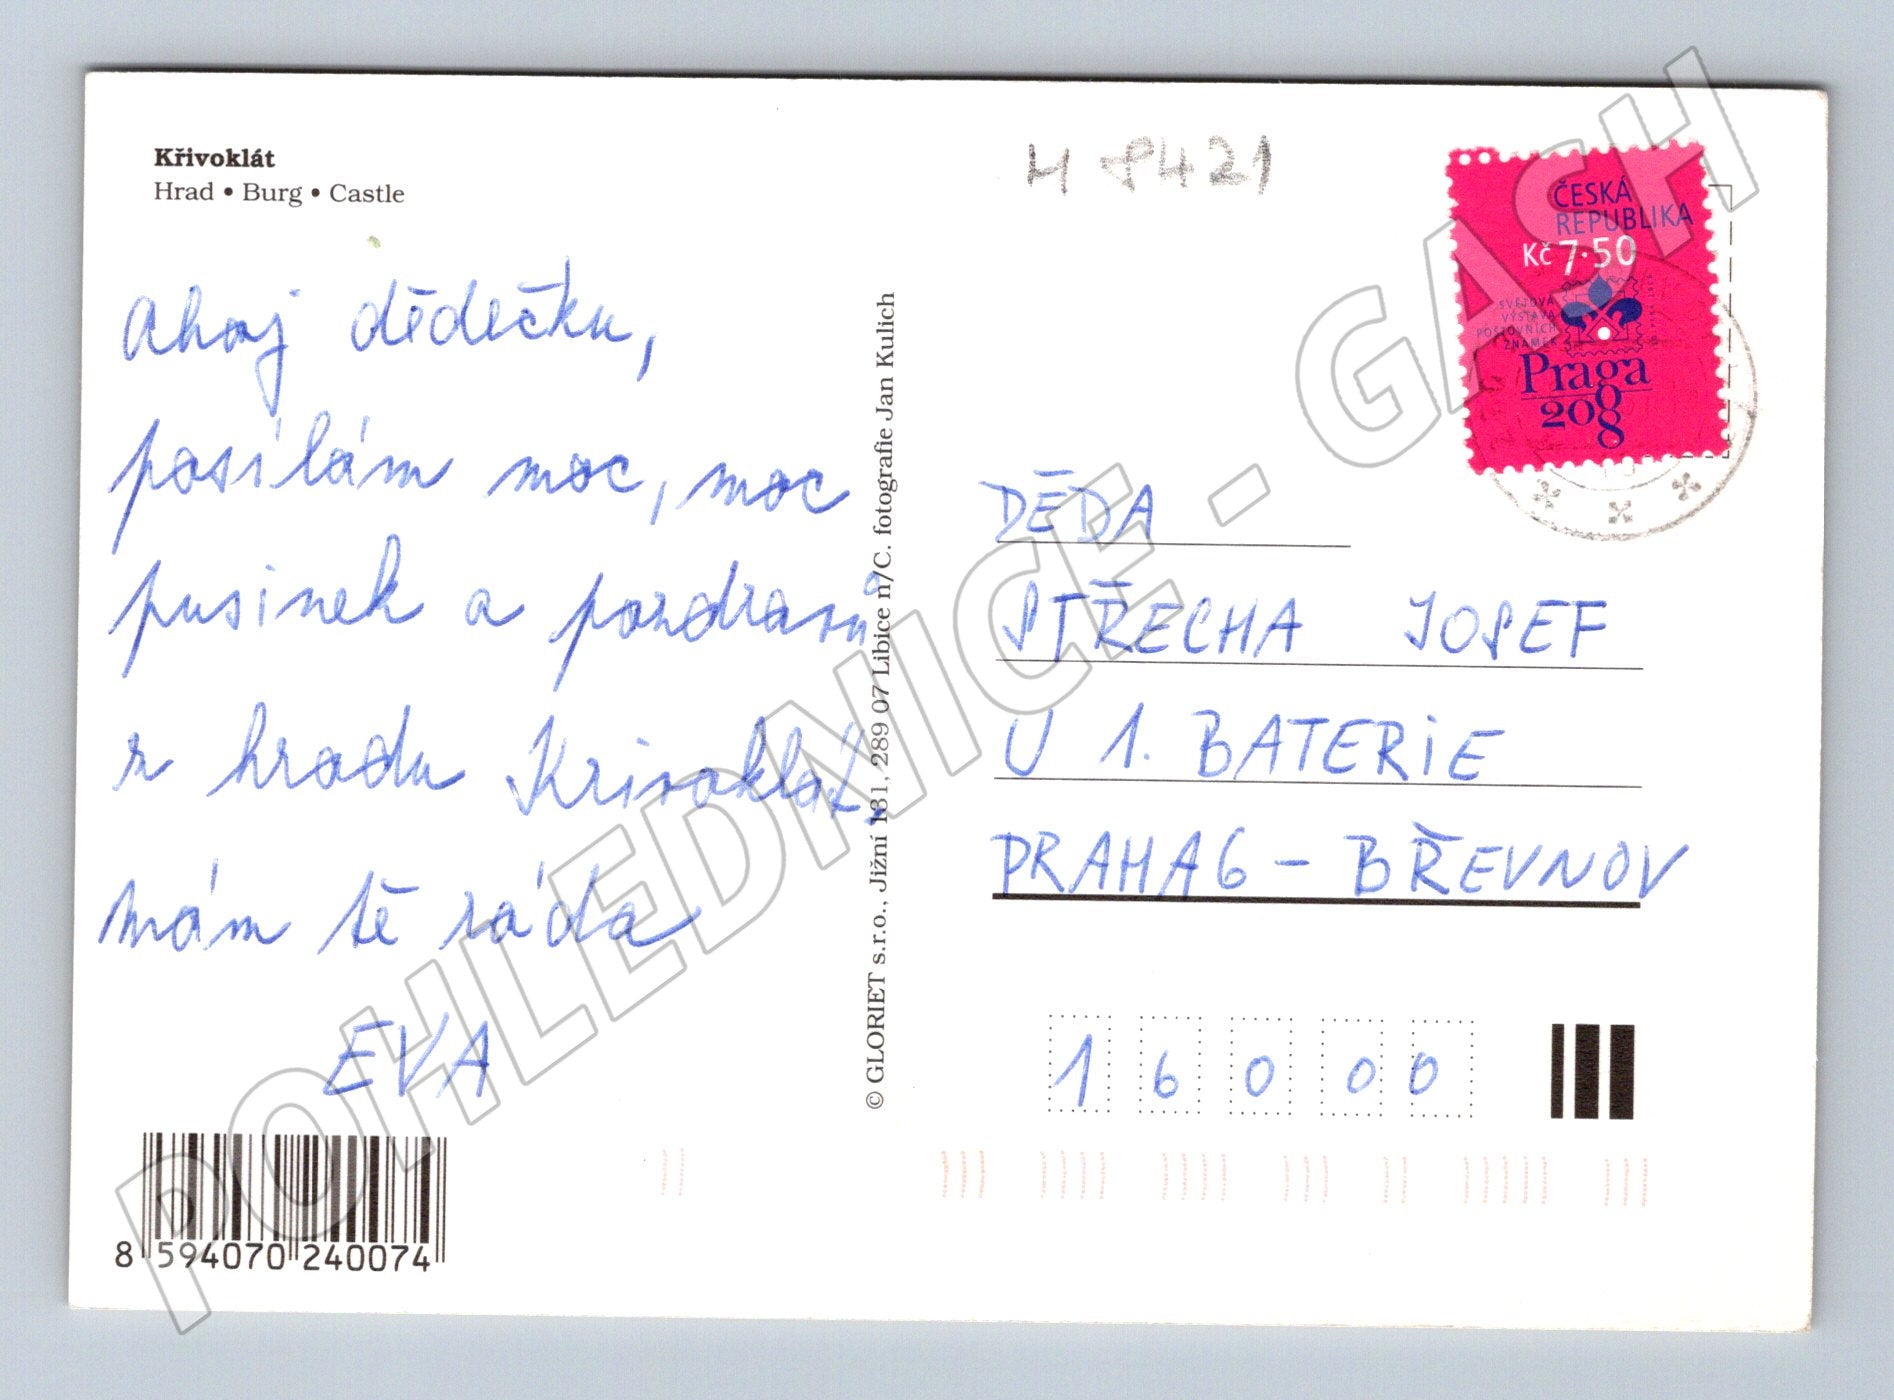 Křivoklát
Hrad • Burg • Castle
H 8421
ČESKÁ
REPUBLIKA
Kč 7·50
SVĚTOVÁ
VÝSTAVA
POŠTOVNÍCH
ZNÁMEK
Praga
2008
Ahoj dědečku,
posílám moc, moc
pusinek a pozdravů
z hradu Křivoklát,
mám tě ráda
EVA
© GLORIET s.r.o., Jižní 131, 289 07 Libice n/C. fotografie Jan Kulich
DĚDA
STŘECHA JOSEF
U 1. BATERiE
PRAHA 6 - BŘEVNOV
16000
8 594070 240074
POHLEDNICE - GASH